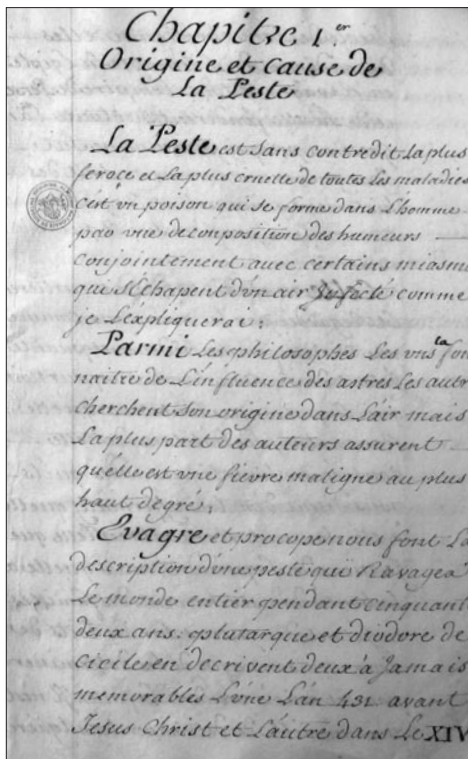 Chapitre 1.er
Origine et cause de
La Peste
La Peste est sans contredit la plus
feroce et la plus cruelle de toutes les maladies
c'est un poison qui se forme dans l'homme
par une deconposition des humeurs
conjointement avec certains miasm
qui s'Echapent d'un air Infecté comme
je L'expliquerai:
Parmi Les philosophes Les uns la fon
naitre de L'influence des astres Les autr
cherchent son origine dans L'air mais
La plus part des auteurs assurent
qu'elle est une fievre maligne au plus
haut degré.
Evagre et procope nous font La
description d'une peste qui Ravagea
Le monde entier pendant cinquant
deux ans. plutarque et diodore de
Cicile en decrivent deux à Jamais
memorables L'une L'an 431 avant
Jesus Christ et L'autre dans Le XIV